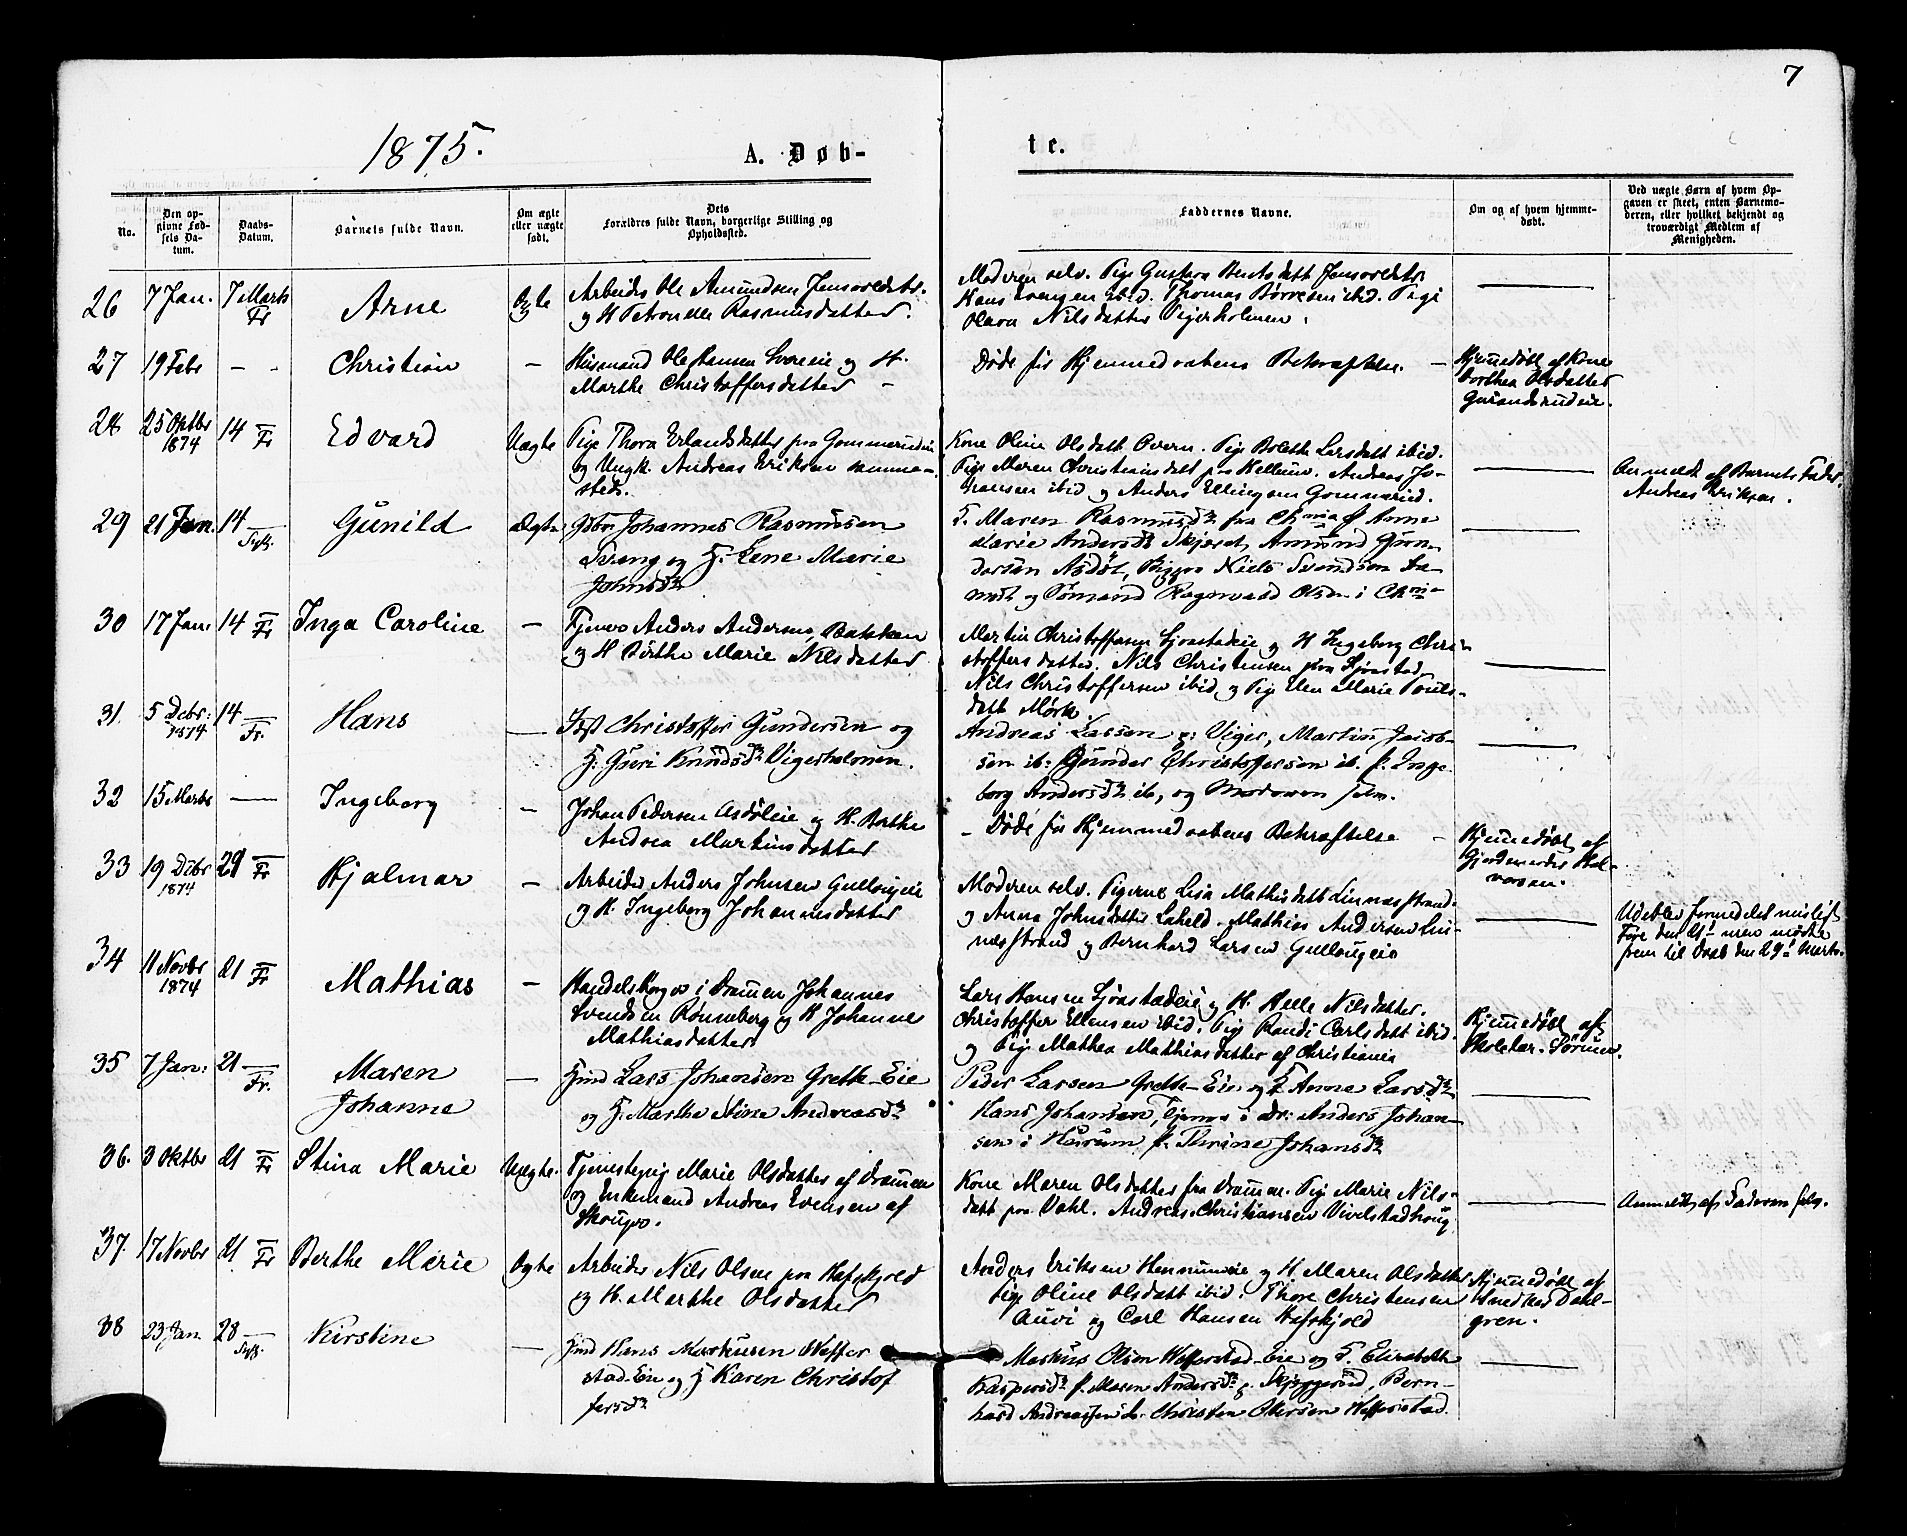 7
1875.
A. Døb-
te.
No.
Den op-
givne Fød-
sels Da-
tum.
Daabs-
Datum.
Barnets fulde Navn.
Om ægte
eller uægte
født.
Dets
Forældres fulde Navn, borgerlige Stilling og
Opholdssted.
Faddernes Navne.
Om og af hvem hjemme-
døbt.
Ved uægte Børn af hvem Op-
gaven er skeet, enten Barnemo-
deren, eller hvilket bekjendt og
troværdigt Medlem af
Menigheden.
26 7 Jan. 7 Marts
Fr
Arne
Ægte
Arbeider Ole Amundsen
og H Petronelle Rasmusdatter.
Moderen selv. Pige Gustava Berntsdatt
ibid. Thomas Børresen ibid. Pige
Olava Nilsdatter Vigerholmen.
27 19 Febr - -
Christian
-
Husmand Ole Hansen og H.
Marthe Christoffersdatter -
Døde før Hjemmedaabens Bekræftelse. -
Hjemmedøbt af Kone
Dorthea Olsdatter
28 25 Oktbr
1874
14 Fr
Edvard
Uægte
Pige Thora Erlandsdatter paa
og Ungk. Andreas Eriksen samme-
steds.
Kone Oline Olsdatt Overn. Pige Bolette Larsdatt ibid.
Pige Maren Christiansdatt paa Kellum. Andreas Jo-
hansen ibid og Anders Ellingsen Gommerud.
Anmeldt af Barnets Fader
Andreas Eriksen.
29 21 Jan. 14
Gunild
Ægte
Gbr Johannes Rasmussen
Tveng og H. Lene Marie
Johnsdr
F. Maren Rasmusdr fra Chnia P Anne
Marie Andersdr Skjæret, Amund Gun-
dersen Asdøl, Niels Svendsen
og Sømand Ragnvald Olsen i Chnia
30 17 Jan. 14 Fr
Inga Caroline
-
Tjener Anders Andersen Bakken
og H Birthe Marie Nilsdatter
Martin Christoffersen og H Ingeborg Chri-
stoffersdatter. Nils Christensen paa
Nils Christoffersen ibid og Pige Elen Marie Pouls-
datt Mørk.
31. 5 Debr:
1874
14
Fr.
Hans
Fæst Christoffer Gundersen og
H. Guri Knudsdr Vigerholmen.
Andreas Larsen p: Viger, Martin Jacob-
sen ib: Gunder Christoffersen ib. P. Inge-
borg Andersdr ib, og Moderen selv.
32 15 Marts
Ingeborg
-
Johan Pedersen Asdøleie og H. Berthe
Andrea Martinsdatter
- Døde før Hjemmedaabens Bekræftelse -
Hjemmedøbt af
Gjordemoder Hal-
vorsen.
33 19 Debr
1874
29 Fr
Hjalmar
-
Arbeider Anders Johnsen Gullaugeie
og H. Ingeborg Johannesdatter
Moderen selv. Pigerne Lisa Mathisdatt Linnæsstrand.
og Anna Johnsdatter Lahell. Mathias Andersen Lin-
næsstrand og Bernhard Larsen Gullaugeie
Udeblev formedelst misligt
Føre den 21 men mødte
frem til Daab den 29 Marts.
34 11 Novbr
1874
21 Fr
Mathias
-
Handelsborger i Dramen Johannes
Svendsen Rønneberg og H Johanne
Mathiasdatter
Lars Hansen og H. Helle Nilsdatter.
Christoffer Ellensen ibid. Pige Randi Carlsdatt ibid
og Pige Mathea Mathiasdatter af Christiania
Hjemmedøbt af
Skolelær. Sørum.
35 7 Jan: 21
Fr.
Maren
Johanne
Hmd Lars Johansen Grette-Eie
og H. Marthe Stine Andreasdr
Peder Larsen Grette-Eie og F Anne Larsdr
Hans Johansen, Tjener i Dr: Anders Johan-
sen i Hurum P. Thrine Johansdr
36. 3 Oktbr 21 Fr
Stina Marie
Uægte.
Tjenestepige Marie Olsdatter af Dramen
og Enkemand Andreas Evensen af
Skouger.
Kone Maren Olsdatter fra Dramen. Pige Marie Nils-
datt paa Dahl. Andreas Christiansen Vivelstadhoug
Anmeldt af Faderen selv.
37. 17 Novbr 21 Fr
Berthe Marie
Ægte
Arbeider Nils Olsen paa Hafskjold
og H. Marthe Olsdatter
Anders Eriksen Hennumeie og H. Maren Olsdatter
Pige Oline Olsdatt ibid. Thore Christensen
Auvi og Carl Hansen Hafskjold
Hjemmedøbt af
Snedker Dahl-
gren.
38 23 Jan 28
Kirstine
Hmd Hans Markusen Weffer
stad-Eie og H Karen Christof
fersdr
Markus Olsen Wefferstad-Eie og F. Elisabeth
Kaspersdr P. Maren Andersdr p. Skjeggerød, Bern-
hard Andreassen Christen Ottersen Wefferstad.